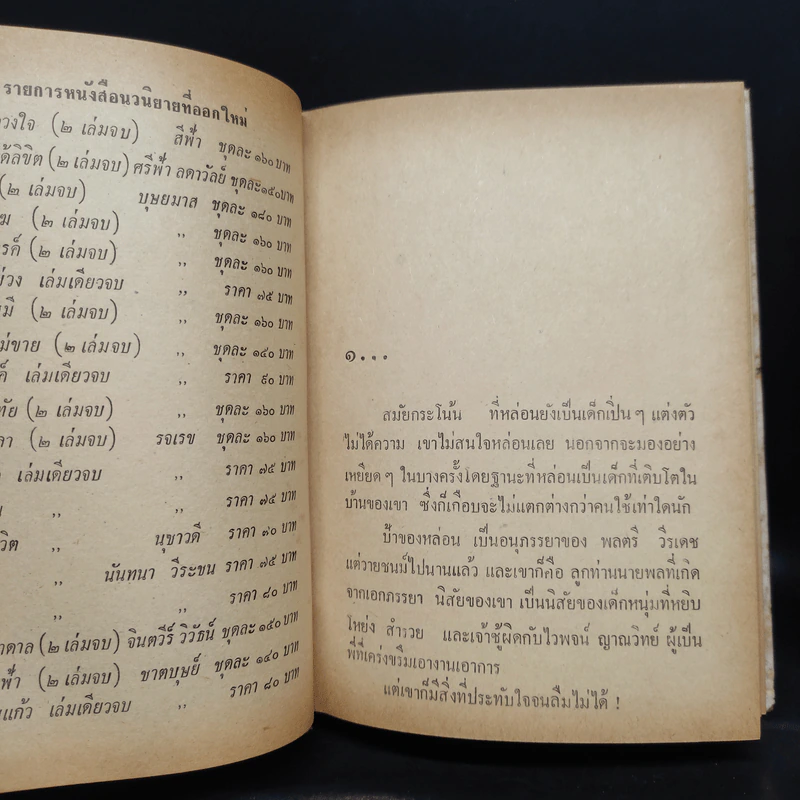 รายการหนังสือนวนิยายที่ออกใหม่
วงใจ (๒ เล่มจบ) สีฟ้า ชุดละ ๑๖๐ บาท
ด้ลิขิต (๒ เล่มจบ) ศรีฟ้า ลดาวัลย์ ชุดละ ๑๕๐ บาท
(๒ เล่มจบ) บุษยมาส ชุดละ ๑๘๐ บาท
ฆ (๒ เล่มจบ) ,, ชุดละ ๑๖๐ บาท
รค์ (๒ เล่มจบ) ,, ชุดละ ๑๖๐ บาท
ม่วง เล่มเดียวจบ ,, ราคา ๗๕ บาท
มี (๒ เล่มจบ) ,, ชุดละ ๑๖๐ บาท
ม่ขาย (๒ เล่มจบ) ,, ชุดละ ๑๔๐ บาท
ค์ เล่มเดียวจบ ,, ราคา ๙๐ บาท
ทัย (๒ เล่มจบ) ,, ชุดละ ๑๖๐ บาท
ลา (๒ เล่มจบ) รจเรข ชุดละ ๑๖๐ บาท
เล่มเดียวจบ ,, ราคา ๗๕ บาท
,, ,, ราคา ๗๕ บาท
วิต ,, นุชาวดี ราคา ๗๐ บาท
,, นันทนา วีระชน ราคา ๗๕ บาท
,, ,, ราคา ๘๐ บาท
าดาล (๒ เล่มจบ) จินตวีร์ วิวัธน์ ชุดละ ๑๕๐ บาท
ฟ้า (๒ เล่มจบ) ชาตบุษย์ ชุดละ ๑๔๐ บาท
แก้ว เล่มเดียวจบ ,, ราคา ๘๐ บาท
๑...
สมัยกระโน้น ที่หล่อนยังเป็นเด็กเปิ่น ๆ แต่งตัว
ไม่ได้ความ เขาไม่สนใจหล่อนเลย นอกจากจะมองอย่าง
เหยียด ๆ ในบางครั้งโดยฐานะที่หล่อนเป็นเด็กที่เติบโตใน
บ้านของเขา ซึ่งก็เกือบจะไม่แตกต่างกว่าคนใช้เท่าใดนัก
ป้าของหล่อน เป็นอนุภรรยาของ พลตรี วีรเดช
แต่วายชนม์ไปนานแล้ว และเขาก็คือ ลูกท่านนายพลที่เกิด
จากเอกภรรยา นิสัยของเขา เป็นนิสัยของเด็กหนุ่มที่หยิบ
โหย่ง สำรวย และเจ้าชู้ผิดกับไวพจน์ ญาณวิทย์ ผู้เป็น
พี่ที่เคร่งขรึมเอางานเอาการ
แต่เขาก็มีสิ่งที่ประทับใจจนลืมไม่ได้ !